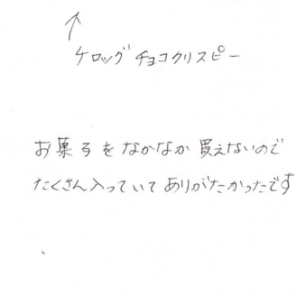 ↑
ケロッグ チョコクリスピー
お菓子をなかなか買えないので
たくさん入っていてありがたかったです